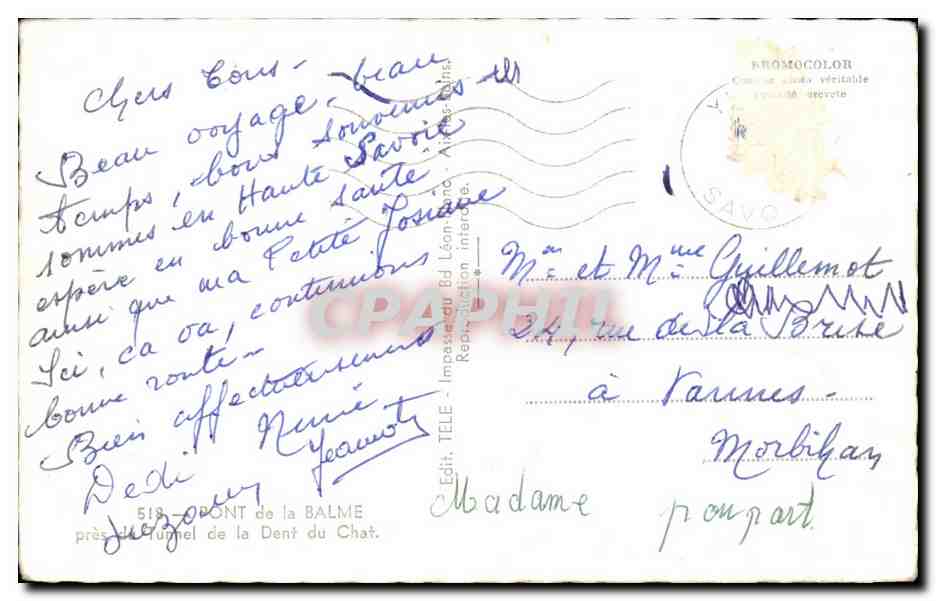 Chers tous -
Beau voyage, beau
temps, nous sommes
sommes en Haute Savoie
espère en bonne santé
ainsi que ma Petite Josiane
Ici, ça va, continuons
bonne route -
Bien affectueusement
Dedi Nini
Jeannot
Suzanne
518 - PONT de la BALME
près du Tunnel de la Dent du Chat.
Edit. TELE - Impasse du Bd Léon-Blanc - Aix-les-Bains.
Reproduction interdite.
BROMOCOLOR
véritable
SAVO
Mr et Mme Guillemot
24, rue de la Brise
à Vannes -
Morbihan
Madame poupart.
CPAPHIL